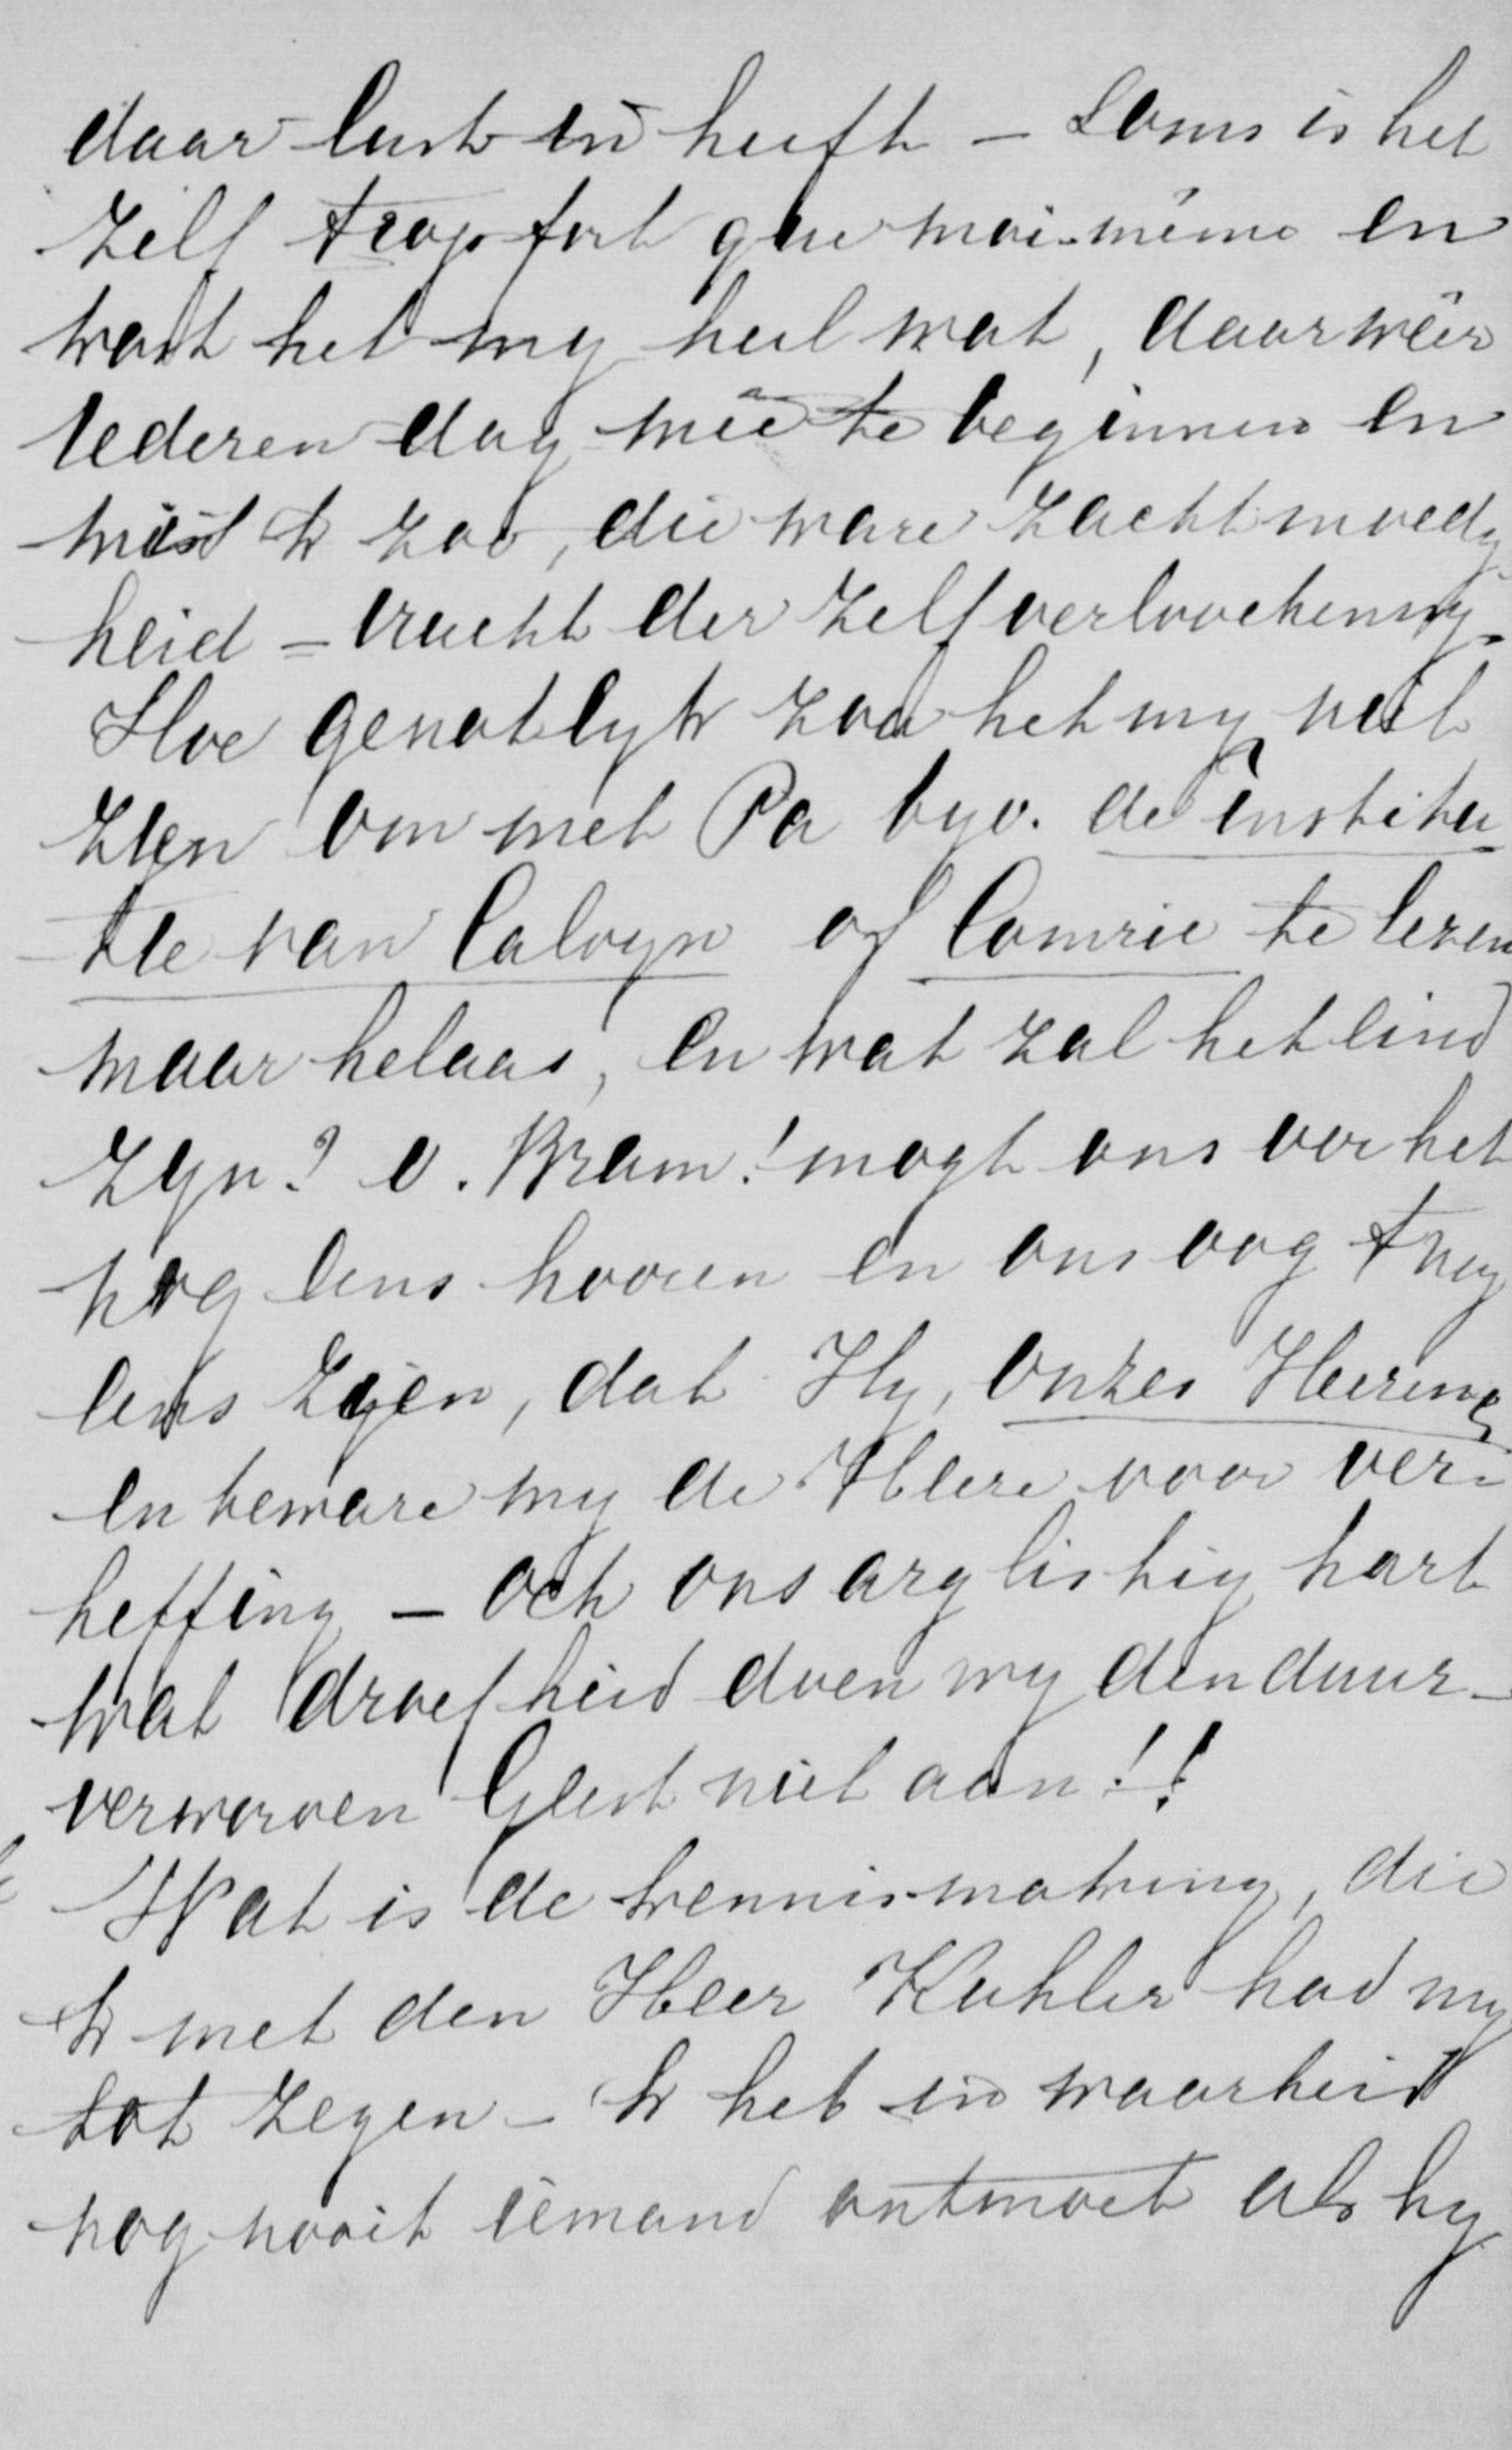 daar lust in heeft – Soms is het
zelf trop fort que moi-même en
kost het my heel wat, daar weêr
iederen dag meê te beginnen en
mist ik zoo, die ware zachtmoedig
heid – vrucht der zelfverloochening.
Hoe genotlyk zou het my niet
zyn om met Pa byv. de institu
tie van Calvyn of Comrie te lezen
maar helaas, en wat zal het eind
zyn? o. Bram! mogt ons oor het
nog eens hooren en ons oog 't nog
eens zien, dat Hy, onzes Heeren is
en beware my de Heere voor ver-
heffing – och ons arglistig hart
wat droefheid doen wy den duur-
verworven Geest niet aan!!
Wat is de kennismaking, die
ik met den Heer Kuhler had my
tot zegen – ik heb in waarheid
nog nooit iemand ontmoet als hy